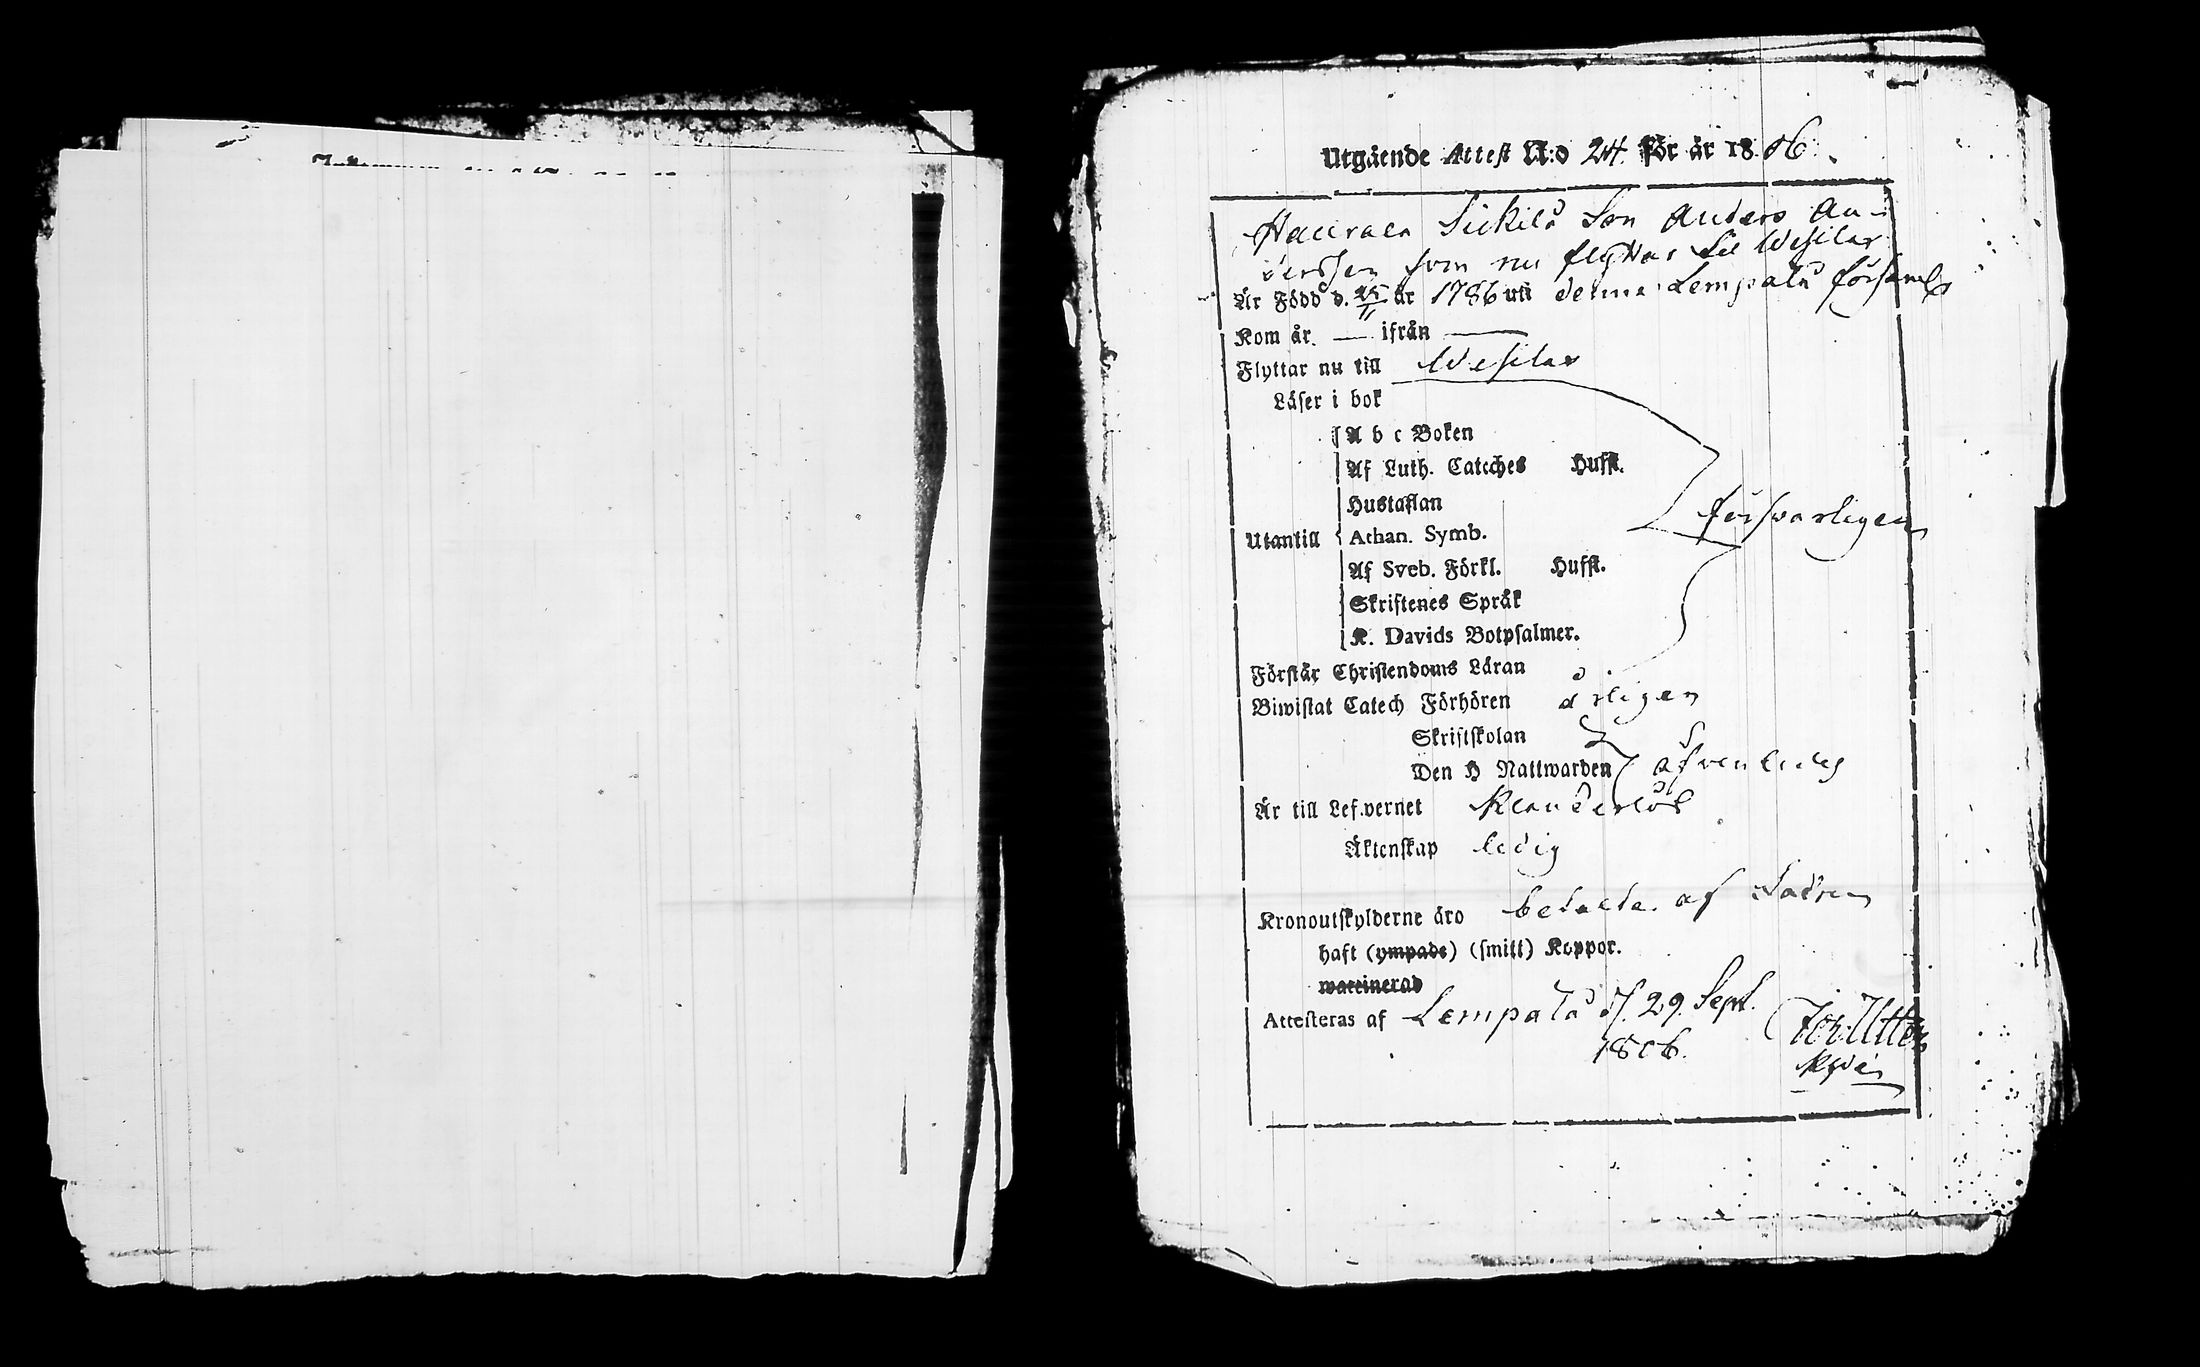 Utgående Attest N:o 24 för år 1806.
Sickilä Son Anders An-
dersson som nu flyttar til Wesilax
Är Född d. 25/11 år 1786 uti denna Lempälä församl.
Kom år — ifrån —
Flyttar nu till Wesilax
Läser i bok
A b c Boken
Af Luth. Cateches Hufst.
Hustaflan
försvarligen
Utantill Athan. Symb.
Af Sveb. Förkl. Hufst.
Skriftenes Språk
K. Davids Botpsalmer.
Förstår Christendoms Läran
Biwistat Catech Förhören årligen
Skriftskolan
Den H Nattwarden äfvenledes
Är till Lefvernet Klanderlös
Äktenskap ledig
Kronoutskylderne äro betalta af
haft (ympade) (smitt) Koppor.
waccinerad
Attesteras af Lempälä d. 29. Sept.
1806.